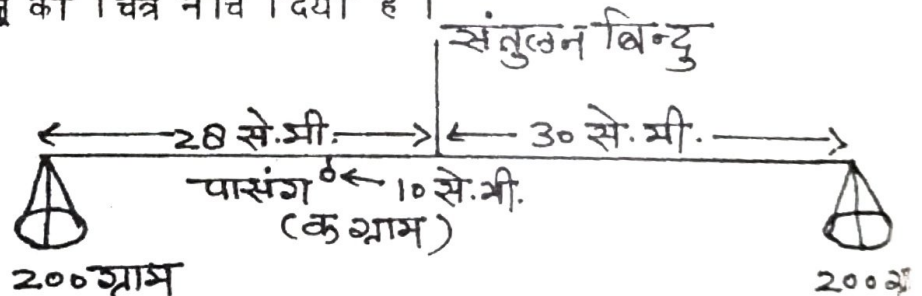 का चित्र नीचे दिया है।
संतुलन बिन्दु
28 से.मी. 30 से.मी.
पासंग 10 से.मी.
(क ग्राम)
200 ग्राम 200